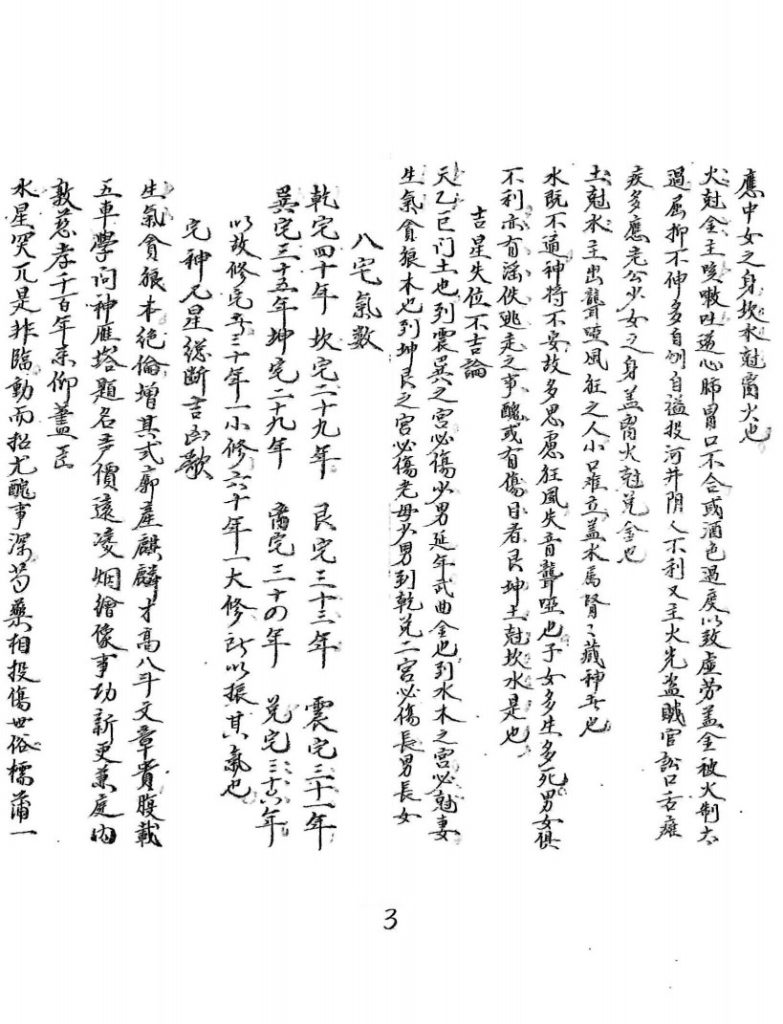 應中女之身坎水尅离火也
火尅金主咳嗽吐逆心肺胃口不合或酒色過度以致虛劳盖金被火制太
過屈抑不伸多自刎自謚投河井阴人不利又主火光盗賊官訟口舌瘫
疾多應老公少女之身盖离火尅兌金也
土尅水主出聾啞風狂之人小口难立盖水馬腎〻藏神者也
水既不通神将不安故多思慮狂風失音聾啞也子女多生多死男女俱
不利亦有淫佚逃走之事醜或有傷目者艮坤土尅坎水是也
吉星失位不吉論
天乙巨门土也到震巽之宫必傷少男延年武曲金也到水木之宫必尅妻
生氣貪狼木也到坤艮之宫必傷老母少男到乾兌二宫必傷長男長女
八宅氣数
乾宅四十年 坎宅二十九年 艮宅三十三年 震宅三十一年
巽宅三十五年 坤宅二十九年 离宅三十四年 兌宅三十六年
以故修宅者三十年一小修六十年一大修所以振其氣也
宅神九星総断吉凶歌
生氣貪狼本絶倫增其式廓產麒麟才高八斗文章貴腹載
五車學问神雁塔題名声價遠凌烟繪像事功新更兼庭内
敦慈孝千百年来仰盖
水星突兀是非臨動而招尤醜事深芍藥相投傷世俗樗蒲一